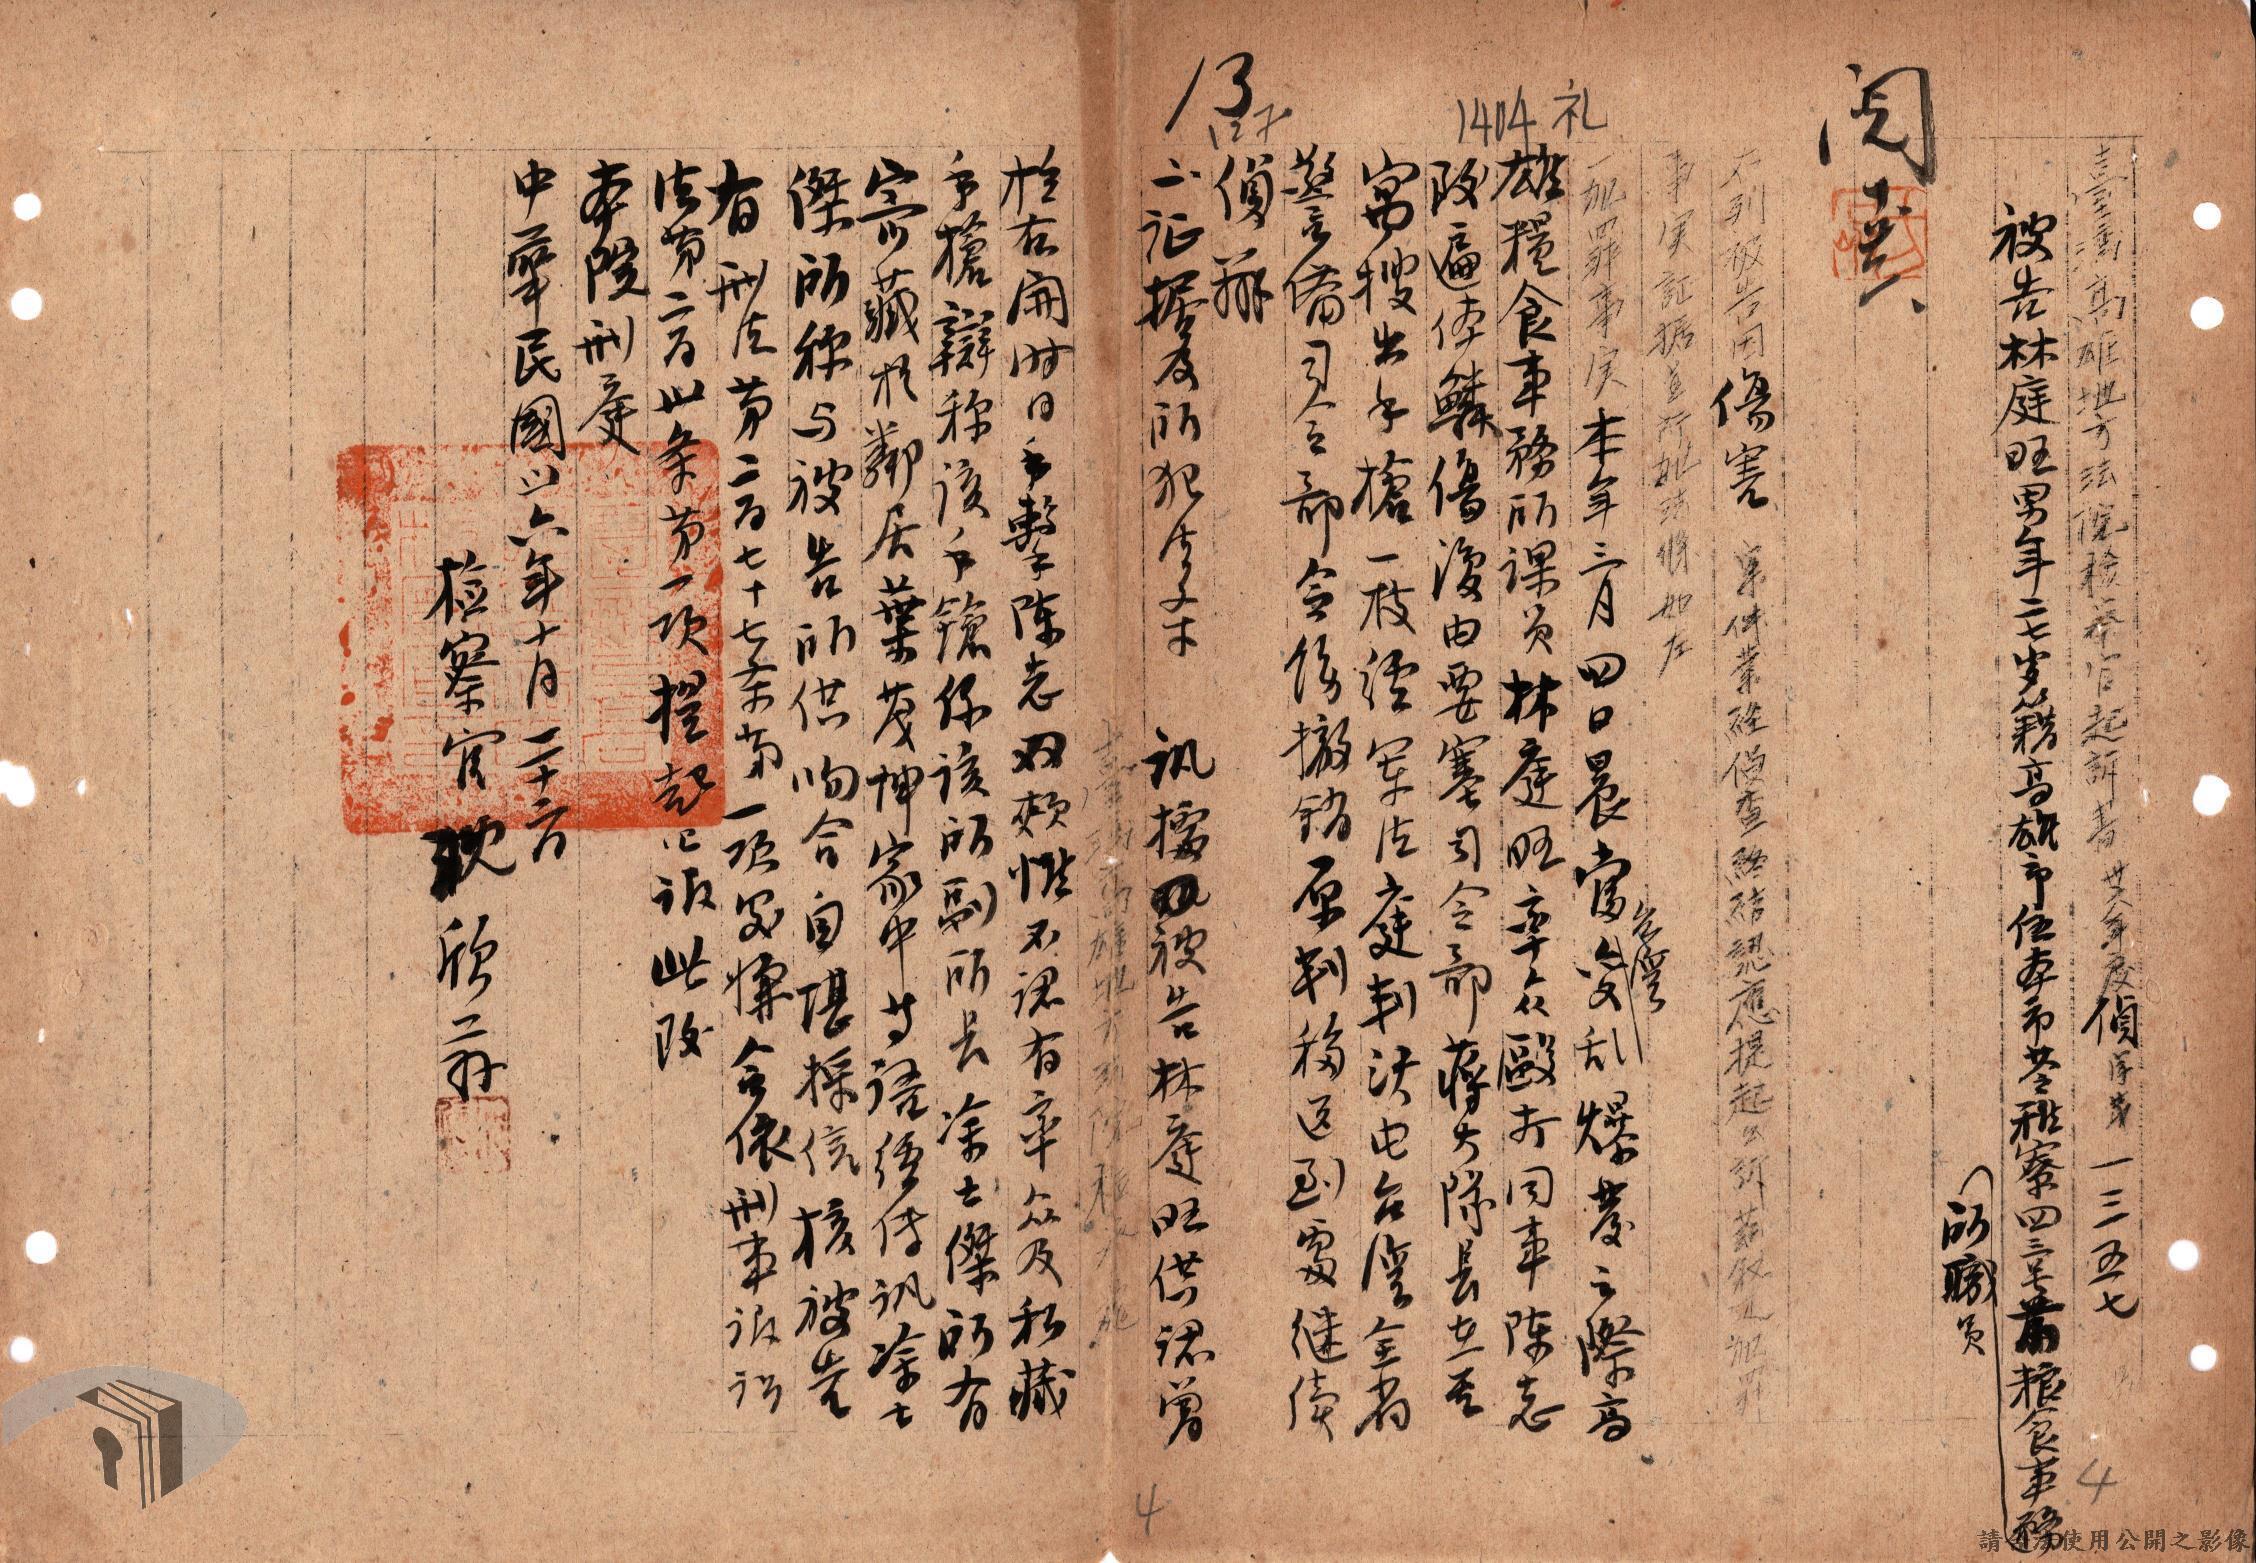 臺灣高雄地方法院檢察官起訴書 卅六年度偵字第一三五七號
被告林庭旺男年二七岁籍高雄市住本市苓雅寮四三号業粮食事務
所職員
閱
右列被告因傷害案件業經偵查終結認應提起公訴茲敘述犯罪
事实証据並所犯法條如左
一犯罪事实 本年三月四日晨當台灣变乱爆發之際高
雄糧食事務所課員林庭旺率众毆打同事陳志
致遍体鱗傷復由要塞司令部蔣大隊長在其
寓搜出手槍一枝經軍法庭判決由台灣全省
警备司令部令飭撤銷原判移送到處继續
偵辦
二証据及所犯法条 訊據被告林庭旺供認曾
於右開時日手擊陳志双頰惟不認有率众及私藏
手槍辯称该手鎗係该所副所長涂士傑所有
寄藏於鄰居葉茂坤家中等語經傳訊涂士
傑所称与被告所供吻合自堪採信核被告
有刑法第二百七十七条第一項罪嫌合依刑事訴訟
法第二百卅条第一項提起公訴此致
本院刑庭
中華民國卅六年十月二十六日
檢察官 欣
1404 礼
4
4
請 使用公開之影像